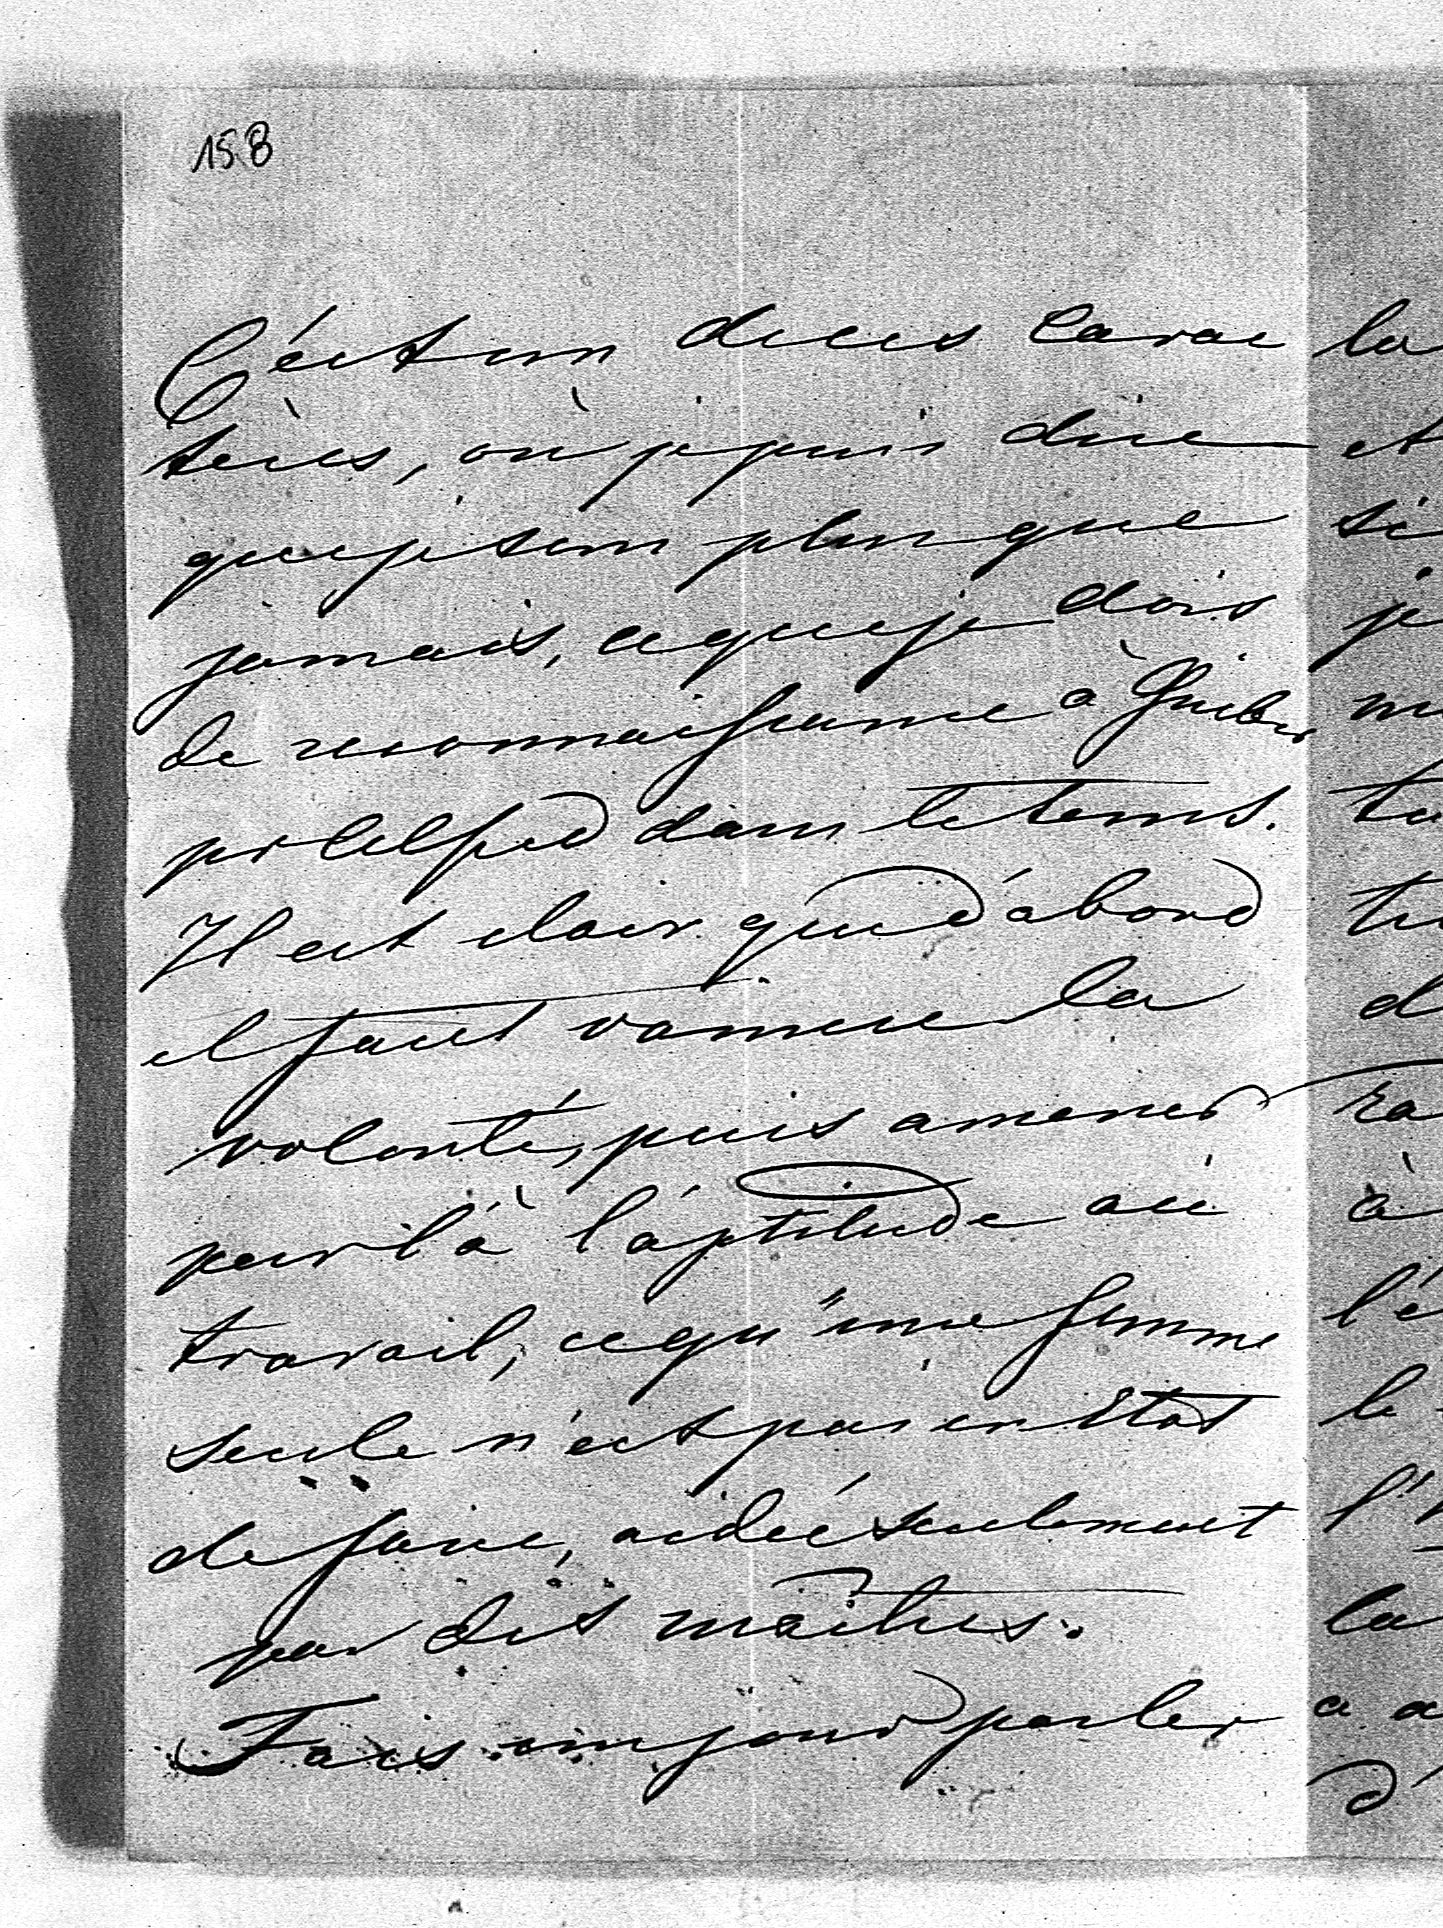 158
C'est un deces carac
tères, où je puis dire
que je sens plus que
jamais, ce que je dois
de reconnaissance à
pr Alfred dans le tems.
Il est clair que d'abord
il faut vaincre la
volonté, puis amener
par là l'aptitude au
travail, ce qu'une femme
seule n'est pas en état
de faire, aidée seulement
par des maîtres.
Fais un jour parler